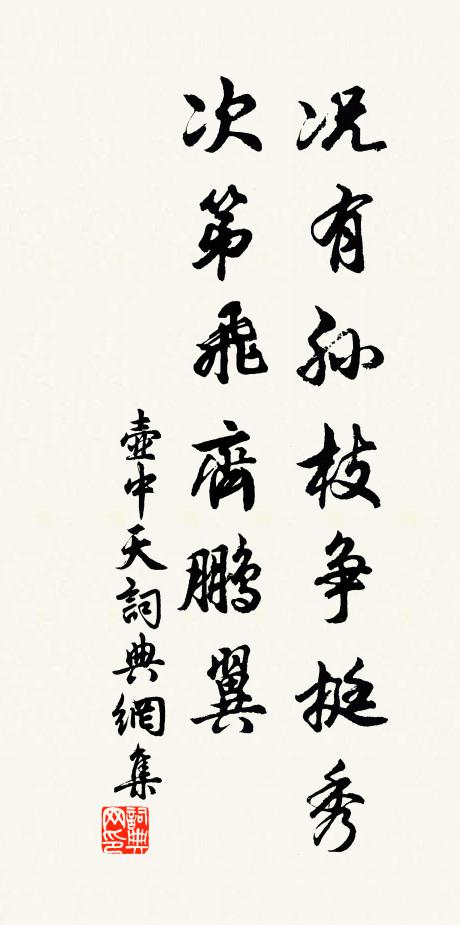 况有孙枝争挺秀
次第飛齊鵬翼
壺中天詞典網集
詞典网印